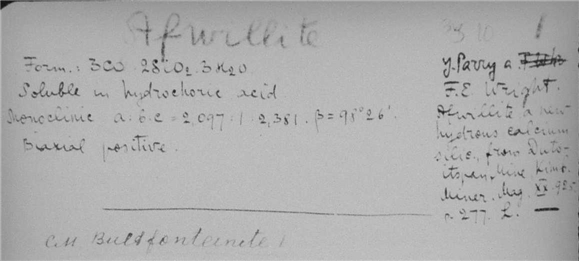 Afwillite
Form.: 3CO 2SiO2. 3H2O.
Soluble in hydrochoric acid
Monoclinic a:b:c = 2,097:1:2,381. β=98°26'.
Biaxial positive.
J. Parry a.
F.E. Wright.
Afwillite a new
hydrous calcium
silic., from Duto-
itspan Mine, Kimb.
Miner. Mag. XX.
p. 277. L.
c.M. Bultfonteinite